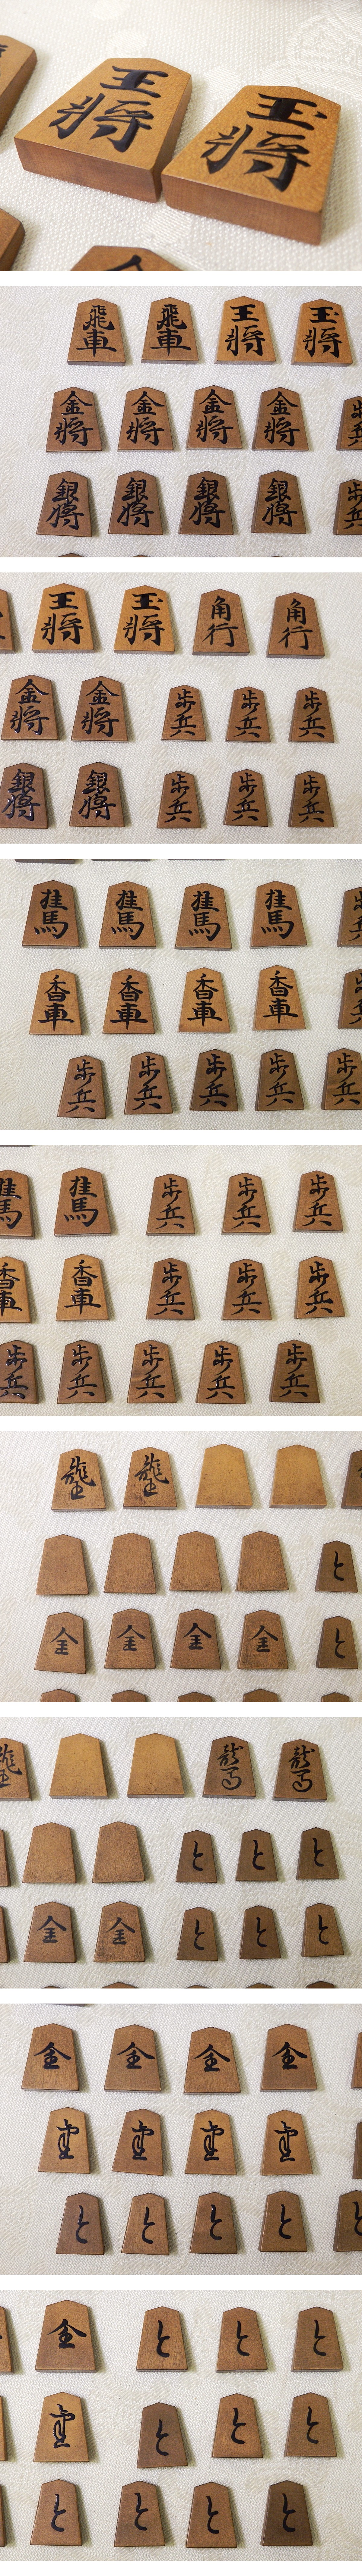 王將 玉將
飛車 飛車 王將 玉將
金將 金將 金將 金將
銀將 銀將 銀將 銀將
王將 玉將 角行 角行
金將 金將 歩兵 歩兵 歩兵
銀將 銀將 歩兵 歩兵 歩兵
桂馬 桂馬 桂馬 桂馬
香車 香車 香車 香車
歩兵 歩兵 歩兵 歩兵 歩兵
桂馬 桂馬 歩兵 歩兵 歩兵
香車 香車 歩兵 歩兵 歩兵
歩兵 歩兵 歩兵 歩兵 歩兵
龍王 龍王
と
全 全 全 全 と
龍王 龍馬 龍馬
と と と
全 全 と と と
全 全 全 全
と と と と と
全 と と と
と と と
と と と と